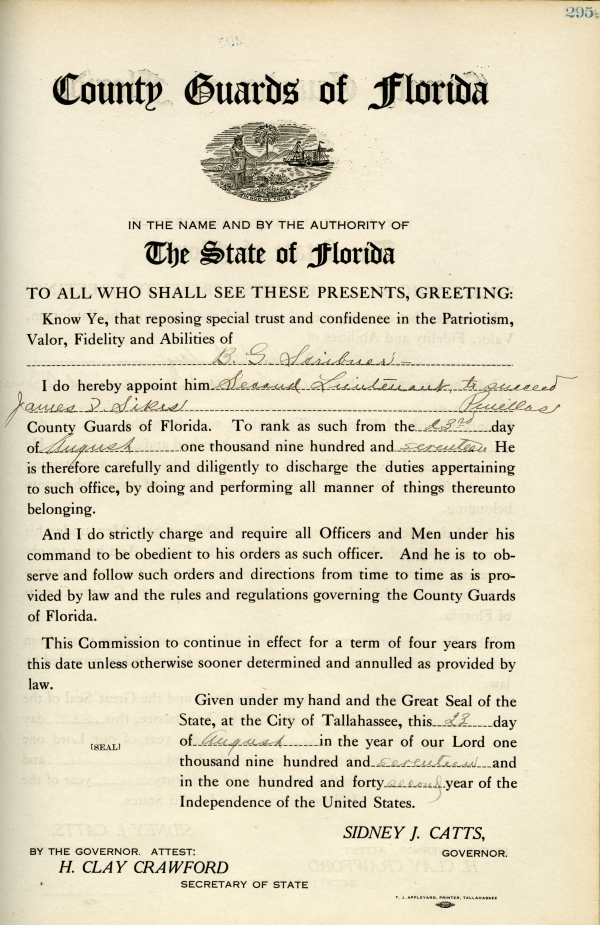 295
County Guards of Florida
IN THE NAME AND BY THE AUTHORITY OF
The State of Florida
TO ALL WHO SHALL SEE THESE PRESENTS, GREETING:
Know Ye, that reposing special trust and confidenee in the Patriotism,
Valor, Fidelity and Abilities of
B. G. Scribner
I do hereby appoint him Second Lieutenant, to succeed
James I. Sikes Pinellas
County Guards of Florida. To rank as such from the 23rd day
of August one thousand nine hundred and seventeen He
is therefore carefully and diligently to discharge the duties appertaining
to such office, by doing and performing all manner of things thereunto
belonging.
And I do strictly charge and require all Officers and Men under his
command to be obedient to his orders as such officer. And he is to ob-
serve and follow such orders and directions from time to time as is pro-
vided by law and the rules and regulations governing the County Guards
of Florida.
This Commission to continue in effect for a term of four years from
this date unless otherwise sooner determined and annulled as provided by
law.
Given under my hand and the Great Seal of the
State, at the City of Tallahassee, this 23 day
[SEAL] of August in the year of our Lord one
thousand nine hundred and seventeen and
in the one hundred and forty second year of the
Independence of the United States.
SIDNEY J. CATTS,
GOVERNOR.
BY THE GOVERNOR. ATTEST:
H. CLAY CRAWFORD
SECRETARY OF STATE
T. J. APPLEYARD, PRINTER, TALLAHASSEE